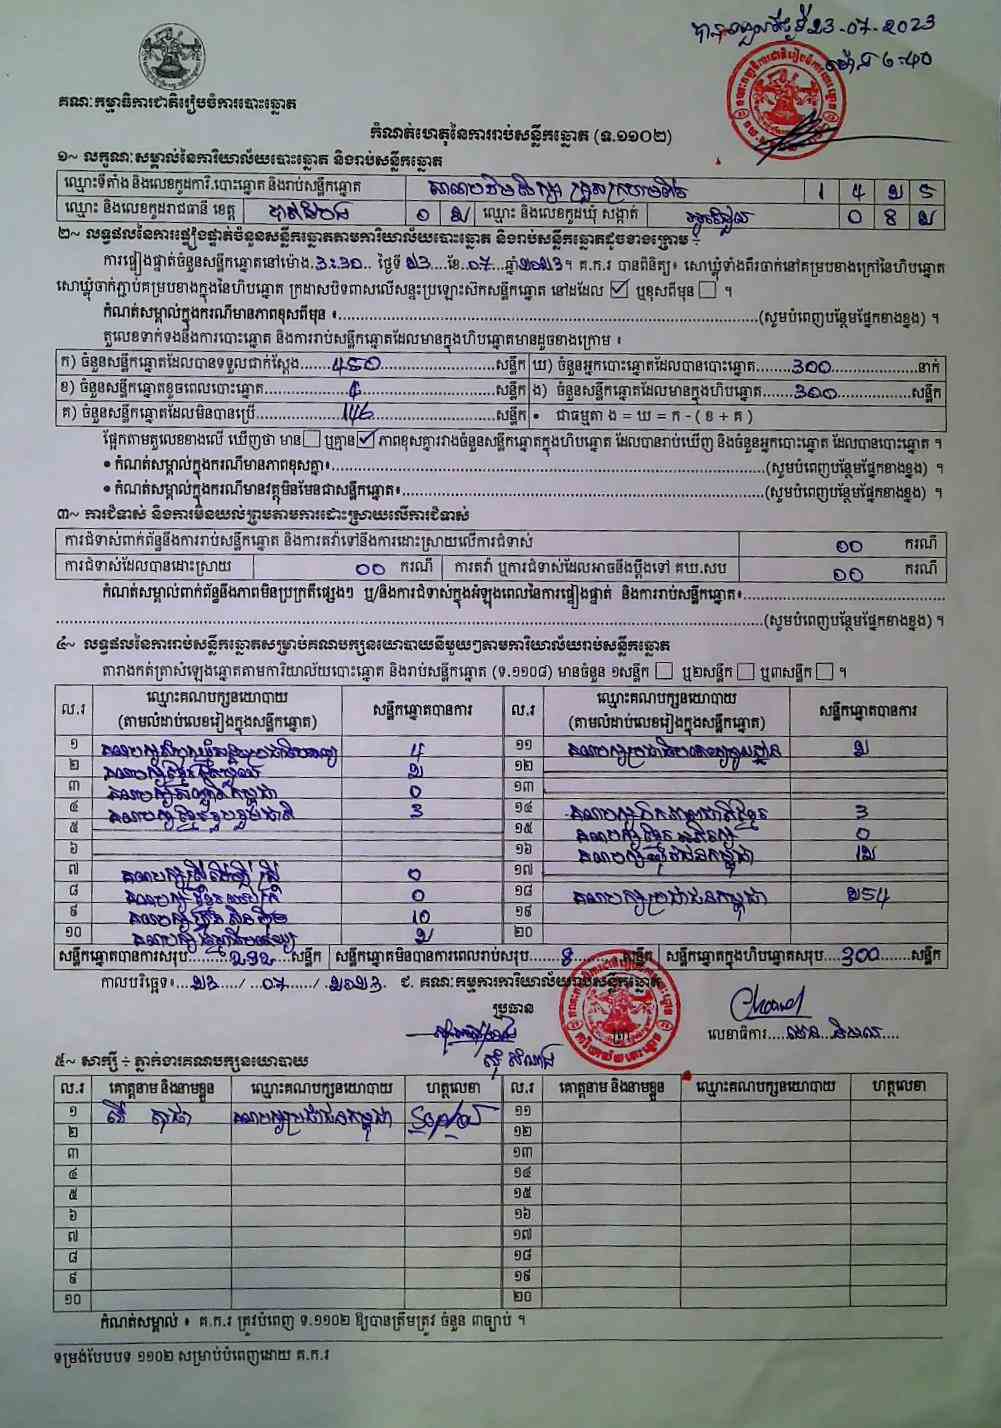 23-07-2023
គណៈកម្មាធិការជាតិរៀបចំការបោះឆ្នោត
កំណត់ហេតុនៃការរាប់សន្លឹកឆ្នោត (ទ.១១០២)
១~ លក្ខណៈសម្គាល់នៃការិយាល័យបោះឆ្នោត និងរាប់សន្លឹកឆ្នោត
ឈ្មោះទីតាំង និងលេខកូដការិ.បោះឆ្នោត និងរាប់សន្លឹកឆ្នោត
ឈ្មោះ និងលេខកូដរាជធានី ខេត្ត បាត់ដំបង ០ ២ ឈ្មោះ និងលេខកូដឃុំ សង្កាត់
២~ លទ្ធផលនៃការផ្ទៀងផ្ទាត់ចំនួនសន្លឹកឆ្នោតតាមការិយាល័យបោះឆ្នោត និងរាប់សន្លឹកឆ្នោតដូចខាងក្រោម ÷
ការផ្ទៀងផ្ទាត់ចំនួនសន្លឹកឆ្នោតនៅម៉ោង 3:30 ថ្ងៃទី ២3 ខែ 07 ឆ្នាំ ២០២3។ គ.ក.រ បានពិនិត្យ៖ សោឃ្លុំទាំងពីរចាក់នៅគម្របខាងក្រៅនៃហិបឆ្នោត
សោឃ្លុំចាក់ភ្ជាប់គម្របខាងក្នុងនៃហិបឆ្នោត ក្រដាសបិទពាសលើសន្ទះប្រឡោះស៊កសន្លឹកឆ្នោត នៅដដែល ☑ ឬខុសពីមុន ☐ ។
កំណត់សម្គាល់ក្នុងករណីមានភាពខុសពីមុន ៖ (សូមបំពេញបន្ថែមផ្នែកខាងខ្នង) ។
តួលេខទាក់ទងនឹងការបោះឆ្នោត និងការរាប់សន្លឹកឆ្នោតដែលមានក្នុងហិបឆ្នោតមានដូចខាងក្រោម ៖
ក) ចំនួនសន្លឹកឆ្នោតដែលបានទទួលជាក់ស្ដែង 450 សន្លឹក ឃ) ចំនួនអ្នកបោះឆ្នោតដែលបានបោះឆ្នោត 300 នាក់
ខ) ចំនួនសន្លឹកឆ្នោតខូចពេលបោះឆ្នោត 4 សន្លឹក ង) ចំនួនសន្លឹកឆ្នោតដែលមានក្នុងហិបឆ្នោត 300 សន្លឹក
គ) ចំនួនសន្លឹកឆ្នោតដែលមិនបានប្រើ 146 សន្លឹក • ជាធម្មតា ង = ឃ = ក - ( ខ + គ )
ផ្អែកតាមតួលេខខាងលើ ឃើញថា មាន ☐ ឬគ្មាន ☑ ភាពខុសគ្នារវាងចំនួនសន្លឹកឆ្នោតក្នុងហិបឆ្នោត ដែលបានរាប់ឃើញ និងចំនួនអ្នកបោះឆ្នោត ដែលបានបោះឆ្នោត ។
• កំណត់សម្គាល់ក្នុងករណីមានភាពខុសគ្នា៖ (សូមបំពេញបន្ថែមផ្នែកខាងខ្នង) ។
• កំណត់សម្គាល់ក្នុងករណីមានវត្ថុមិនមែនជាសន្លឹកឆ្នោត៖ (សូមបំពេញបន្ថែមផ្នែកខាងខ្នង) ។
៣~ ការជំទាស់ និងការមិនយល់ព្រមតាមការដោះស្រាយលើការជំទាស់
ការជំទាស់ពាក់ព័ន្ធនឹងការរាប់សន្លឹកឆ្នោត និងការតវ៉ាទៅនឹងការដោះស្រាយលើការជំទាស់ 00 ករណី
ការជំទាស់ដែលបានដោះស្រាយ 00 ករណី ការតវ៉ា ឬការជំទាស់ដែលអាចនឹងប្ដឹងទៅ គឃ.សប 00 ករណី
កំណត់សម្គាល់ពាក់ព័ន្ធនឹងភាពមិនប្រក្រតីផ្សេងៗ ឬ/និងការជំទាស់ក្នុងអំឡុងពេលនៃការផ្ទៀងផ្ទាត់ និងការរាប់សន្លឹកឆ្នោត៖
(សូមបំពេញបន្ថែមផ្នែកខាងខ្នង) ។
៤~ លទ្ធផលនៃការរាប់សន្លឹកឆ្នោតសម្រាប់គណបក្សនយោបាយនីមួយៗតាមការិយាល័យរាប់សន្លឹកឆ្នោត
តារាងកត់ត្រាសំឡេងឆ្នោតតាមការិយាល័យបោះឆ្នោត និងរាប់សន្លឹកឆ្នោត (ទ.១១០៨) មានចំនួន ១សន្លឹក ☐ ឬ២សន្លឹក ☐ ឬ៣សន្លឹក ☐ ។
ល.រ ឈ្មោះគណបក្សនយោបាយ (តាមលំដាប់លេខរៀងក្នុងសន្លឹកឆ្នោត) សន្លឹកឆ្នោតបានការ ល.រ ឈ្មោះគណបក្សនយោបាយ (តាមលំដាប់លេខរៀងក្នុងសន្លឹកឆ្នោត) សន្លឹកឆ្នោតបានការ
១ គណបក្សសំបុកឃ្មុំសង្គមប្រជាធិបតេយ្យ ១១ ២
២ គណបក្សខ្មែររួបរួម ២ ១២
៣ គណបក្សកម្ពុជា 0 ១៣
៤ គណបក្សខ្មែររួបរួមជាតិ 3 ១៤ គណបក្សឯកភាពជាតិខ្មែរ 3
៥ ១៥ គណបក្សខ្មែរ 0
៦ ១៦ គណបក្សយុវជនកម្ពុជា 1២
៧ គណបក្សស្ត្រីដើម្បីស្ត្រី 0 ១៧
៨ គណបក្សខ្មែរ 0 ១៨ គណបក្សប្រជាជនកម្ពុជា ២54
៩ គណបក្សហ្វ៊ុនស៊ិនប៉ិច 10 ១៩
១០ គណបក្ស ២ ២០
សន្លឹកឆ្នោតបានការសរុប ២9២ សន្លឹក សន្លឹកឆ្នោតមិនបានការពេលរាប់សរុប 8 សន្លឹក សន្លឹកឆ្នោតក្នុងហិបឆ្នោតសរុប 300 សន្លឹក
កាលបរិច្ឆេទ៖ ២3 / 07 / ២០២3 ជ. គណៈកម្មការការិយាល័យរាប់សន្លឹកឆ្នោត
ប្រធាន
លេខាធិការ
៥~ សាក្សី ÷ ភ្នាក់ងារគណបក្សនយោបាយ
ល.រ គោត្តនាម និងនាមខ្លួន ឈ្មោះគណបក្សនយោបាយ ហត្ថលេខា ល.រ គោត្តនាម និងនាមខ្លួន ឈ្មោះគណបក្សនយោបាយ ហត្ថលេខា
១ គណបក្សប្រជាជនកម្ពុជា ១១
២ ១២
៣ ១៣
៤ ១៤
៥ ១៥
៦ ១៦
៧ ១៧
៨ ១៨
៩ ១៩
១០ ២០
កំណត់សម្គាល់ ៖ គ.ក.រ ត្រូវបំពេញ ទ.១១០២ ឱ្យបានត្រឹមត្រូវ ចំនួន ៣ច្បាប់ ។
ទម្រង់បែបបទ ១១០២ សម្រាប់បំពេញដោយ គ.ក.រ